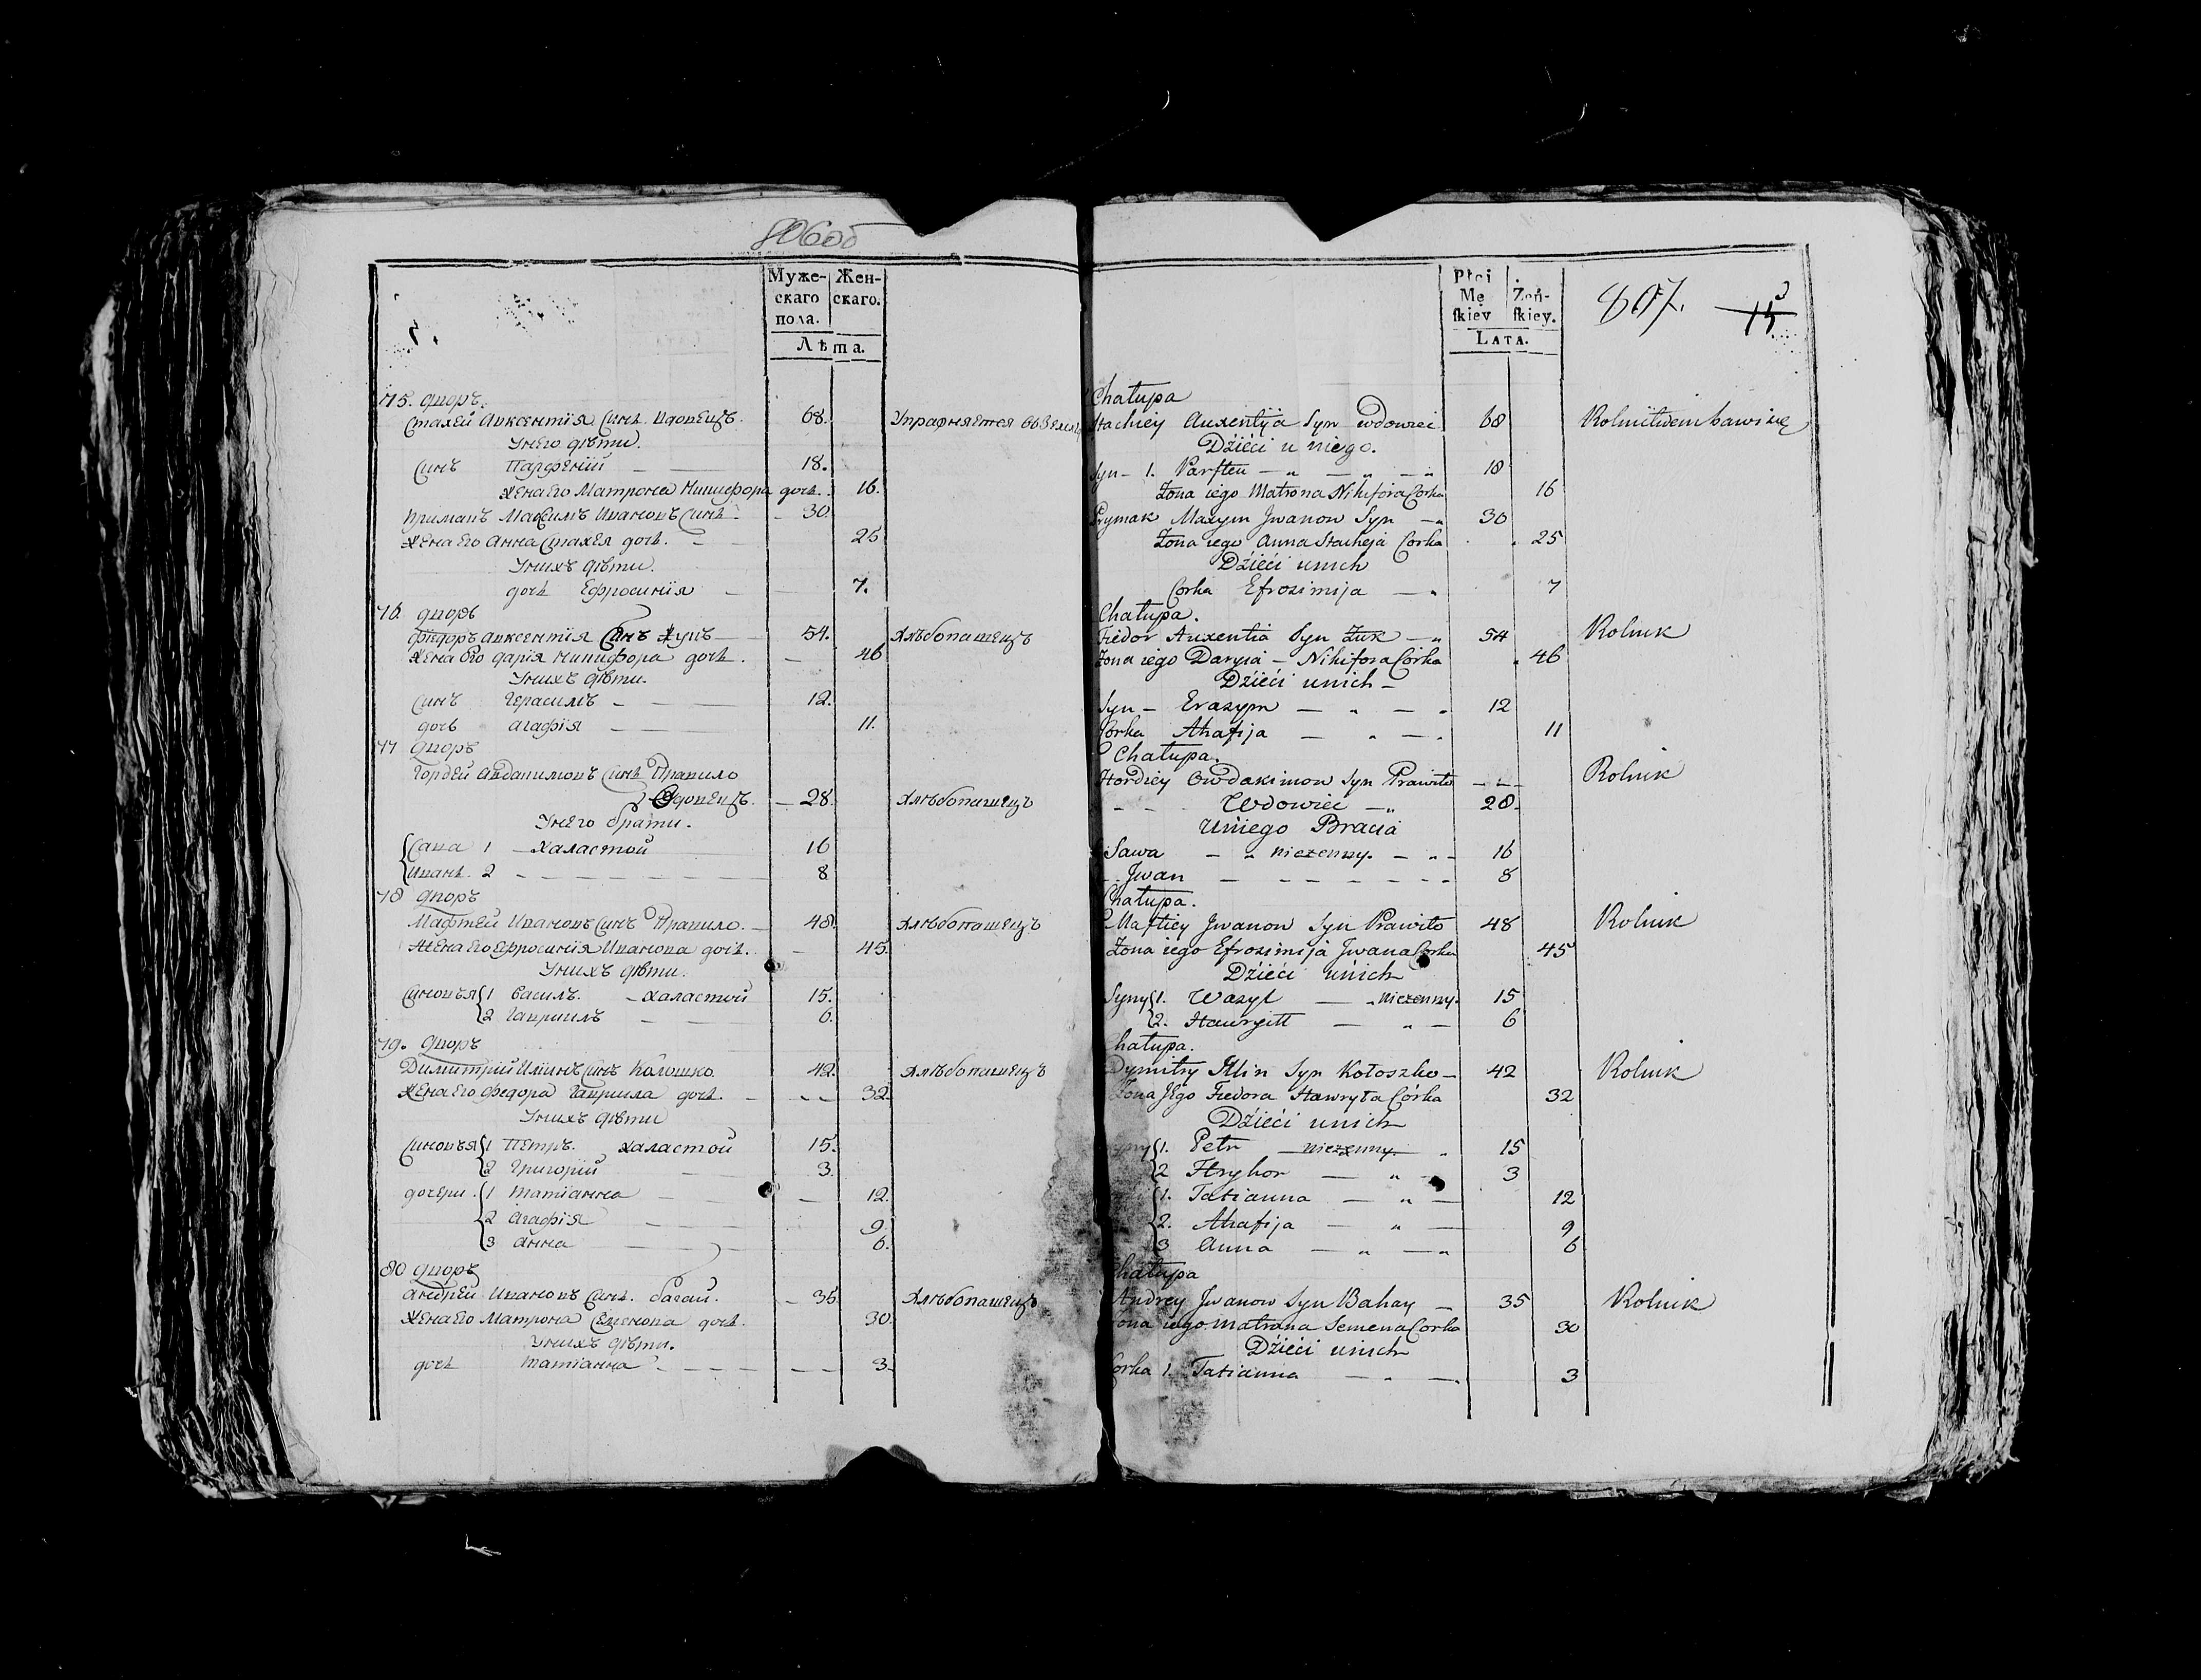 806об
Муже-
скаго
пола.
Жен-
скаго.
Лѣта.
75. Дворъ.
Стахей Авксентія Синъ вдовецъ. 68. Упражняется въ Земле
У него дѣти.
Синъ Парфеній 18.
Жена Его Матрона Никифора дочь. 16.
Примакъ Максимъ Ивановъ Синъ 30.
Жена Его Анна Стахея дочь. 25
У нихъ дѣти.
дочь Ефросинія 7.
76. дворъ
Фіедоръ Авксентія Синъ Жукъ 54. Хлѣбопашецъ
Жена Его Дарія Никифора дочь. 46
У нихъ дѣти.
Синъ Герасимъ 12.
дочь Агафія 11.
77 Дворъ
Гордей Авдакимовъ Синъ Правило
Вдовецъ. 28. Хлѣбопашецъ
У него брати.
Сава 1 Халастой 16
Иванъ. 2 8
78 Дворъ
Мафтей Ивановъ Синъ Правило. 48. Хлѣбопашецъ
Жена Его Ефросинія Иванова дочь. 45.
У нихъ дѣти.
Синовья 1 Василъ. Халастой 15.
2 Гавриилъ 6.
79. Дворъ
Димитрій Илинъ Синъ Колошко. 42. Хлѣбопашецъ
Жена Его Федора Гаврила дочь. 32.
У нихъ дѣти
Синовья 1 Петръ. Халастой 15.
2 Григорій 3.
дочери. 1 Татіанна 12.
2 Агафія 9.
3 Анна 6.
80 Дворъ
Андрей Ивановъ Синъ. Багай. 35 Хлѣбопашецъ
Жена Его Матрона Семенова дочь. 30.
У нихъ дѣти.
дочь Татіанна 3.
Płci
Mę
ſkiey
Żeń-
ſkiey.
LATA.
807.
Chałupa
Stachiey Auxentija Syn wdowiec 68 Rolnictwem bawi się
Dzieci u niego.
Syn - 1. Parften 18
Żona iego Matrona Nikifora Corka 16
Prymak Maxym Jwanow Syn 30
Żona iego Anna Stacheja Corka 25
Dzieci u nich
Corka Efrozimija 7
Chałupa.
Fiedor Auxentia Syn Żuk 54 Rolnik
Żona iego Daryia - Nikifora Córka 46
Dzieci u nich -
Syn - Erazym 12
Corka Ahafija 11
Chałupa.
Hordiey Owdakimow Syn Prawiło Rolnik
Wdowiec 28.
U niego Bracia
Sawa nieżenny. 16
Jwan 8
Chałupa.
Maftiey Jwanow Syn Prawiło 48 Rolnik
Żona iego Efrozimija Jwana Corka 45
Dzieci u nich
Syny 1. Wazyl nieżenny. 15
2. Hawryłł 6
Chałupa.
Dymitry Illin Syn Kołoszko - 42 Rolnik
Żona Jego Fiedora Hawryła Córka 32
Dzieci u nich
Syny 1. Petr nieżenny 15
2 Hryhor 3
1. Tatianna 12
2. Ahafija 9
3 Anna 6
Chałupa
Andrey Jwanow Syn Bahay 35 Rolnik
Żona iego Matrona Semena Corka 30
Dzieci u nich
Corka 1. Tatianna 3